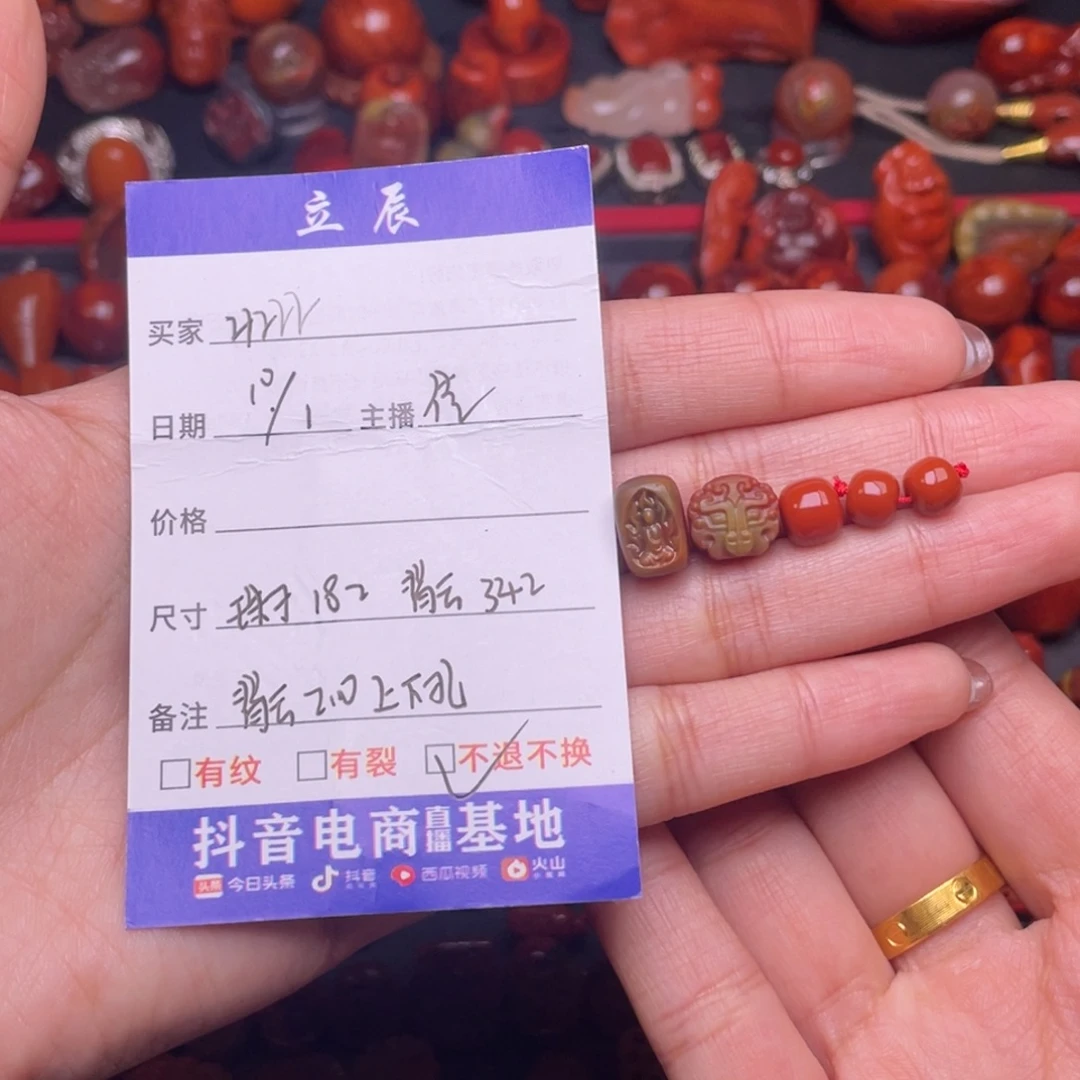 立辰
买家 4222
日期 10/1 主播 佳
价格
尺寸 珠子 182 背云 342
备注 背云 2.0 上下孔
□有纹 □有裂 ☑不退不换
抖音电商直播基地
头条 今日头条 抖音 西瓜视频 火山